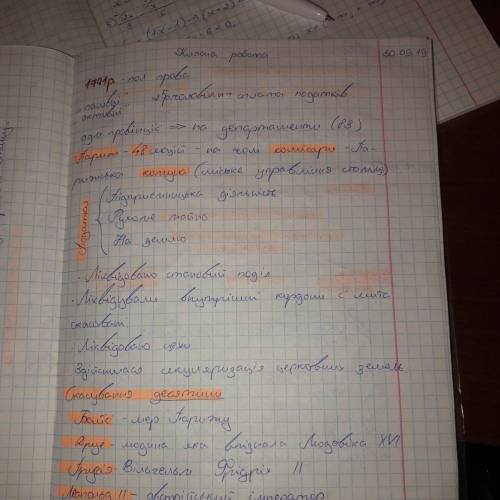 Класна робота 30.09.19
1791р - пол права
"пасивні" чоловіки + сплата податків
активні
адм провінціє => на департаменти (83)
Париж - 48 секцій - на чом комісари - Па-
ризька комуна (міське управління столиці)
Податки
Підприємницька діяльність
Рухоме майно
На землю
· Ліквідовано становий поділ
· Ліквідували внутрішні кордони і мита
скасован.
Ліквідовано цехи
Здійснилася секуляризація церковних земель
Скасування десятини
Байї - мер Парижу
Друе - людина яка впізнала Людовіка XVI
Прусія - Вільгельм Фрідріх II
Леопольд II - австрійський імператор